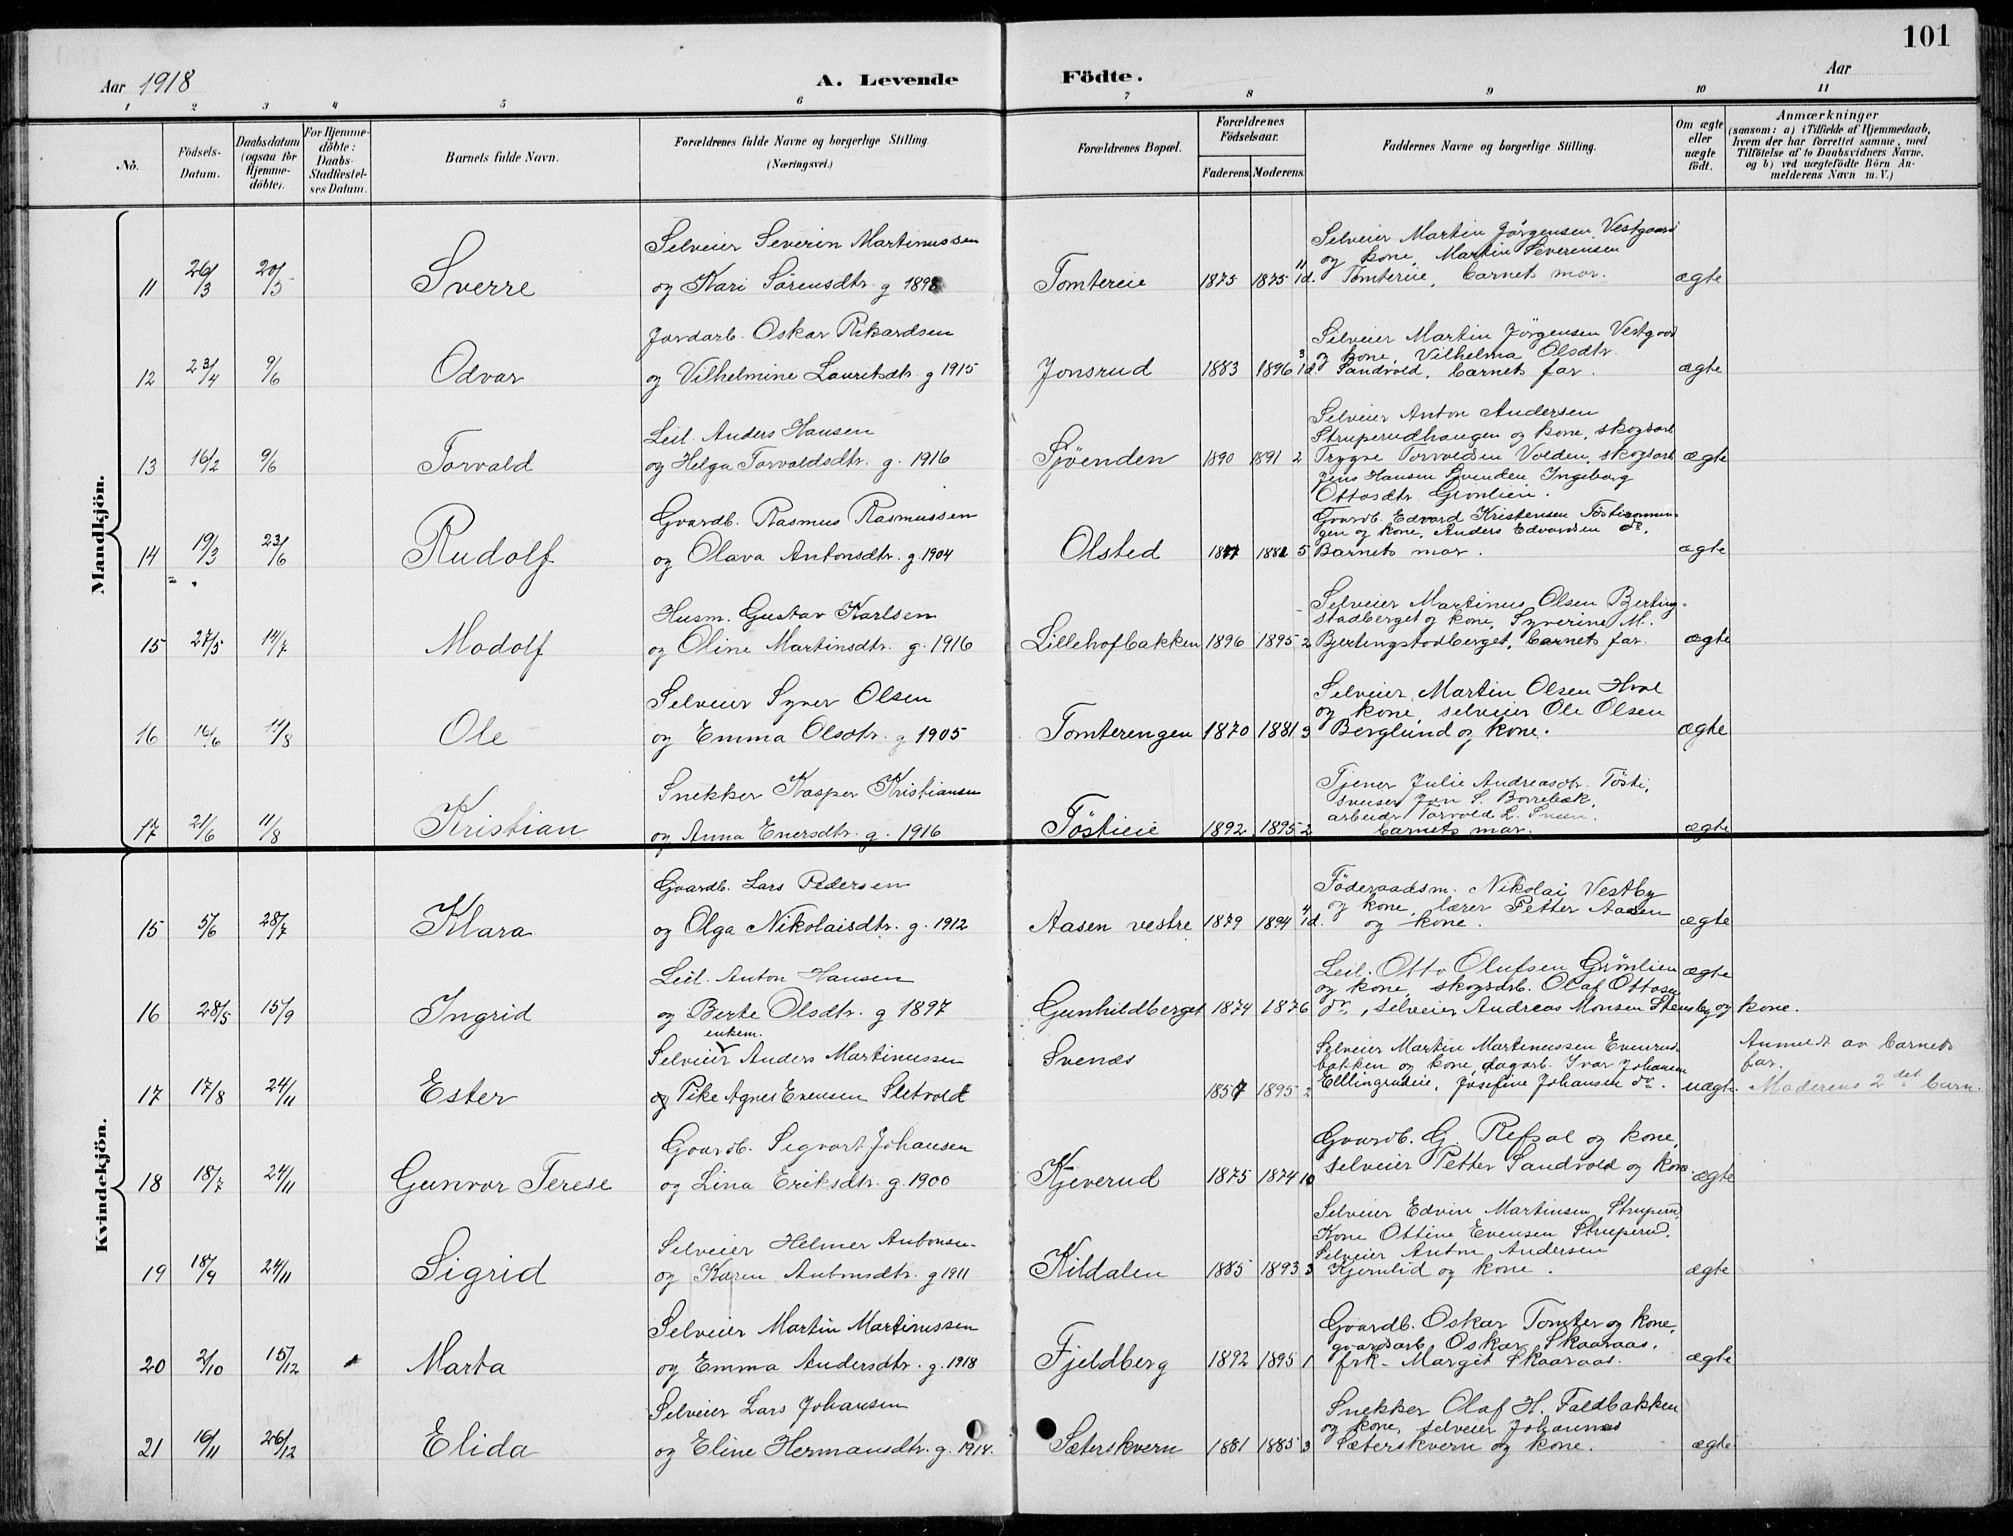 101
Aar 1918
A. Levende
Födte.
Aar
1 2 3 4 5 6 7 8 9 10 11
No.
Födsels-
Datum.
Daabsdatum
(ogsaa for
Hjemme-
döbte).
For Hjemme-
döbte:
Daabs-
Stadfæstel-
ses Datum.
Barnets fulde Navn.
Forældrenes fulde Navne og borgerlige Stilling
(Næringsvei.)
Forældrenes Bopæl.
Forældrenes
Födselsaar.
Faderens. Moderens.
Faddernes Navne og borgerlige Stilling.
Om ægte
eller
uægte
födt.
Anmærkninger
(saasom: a) i Tilfælde af Hjemmedaab,
hvem der har forrettet samme, med
Tilföielse af to Daabsvidners Navne.
og b) ved uægtefödte Börn An-
melderens Navn m.V.)
Mandkjön.
11 26/3 20/5 Sverre
Selveier Severin Martinussen
og Kari Sörensdtr. g 1898
Tomtereie 1875 1875 11 1d.
Selveier Martin Jörgensen Vestgaard
og kone, Martin Severinsen
Tomtereie, barnets mor.
ægte
12 23/4 9/6 Odvar
Jordarb. Oskar Rikardsen
og Vilhelmine Lauritsdtr. g 1915
Jonsrud 1883 1896 3 1d
Selveier Martin Jörgensen Vestgaard
og kone, Vilhelma Olsdtr.
Sandvold, barnets far.
ægte
13 16/2 9/6 Torvald
Leil. Anders Hansen
og Helga Torvaldsdtr. g. 1916
Sjöenden 1890 1891 2
Selveier Anton Andersen
Struperudhaugen og kone, skogsarb
Trygve Torvaldsen Volden, skogsarb
Jens Hansen Sjöenden, Ingeborg
Ottosdtr. Grönlien.
ægte
14 19/3 23/6 Rudolf
Gaardb. Rasmus Rasmussen
og Olava Antonsdtr. g. 1904
Olsted 5
Gaardb. Edvard Kristensen
gen og kone, Anders Edvardsen do.
Barnets mor.
ægte
15 27/5 14/7 Modolf
Husm. Gustav Karlsen
og Oline Martinsdtr. g. 1916
Lillehofbakken 1896 1895 2
Selveier Martinus Olsen Berting-
stadberget og kone, Syverine M.
Bjertingstadberget, barnets far.
ægte
16 16/6 11/8 Ole
Selveier Syver Olsen
og Emma Olsdtr. g 1905
Tomterengen 1870 1881 3
Selveier Martin Olsen Hvol
og kone, selveier Ole Olsen
Berglund og kone.
ægte
17 21/6 11/8 Kristian
Snekker Kasper Kristiansen
og Anna Enersdtr. g. 1916
Töstieie 1892 1895 2
Tjener Julie Andreasdtr. Tösti,
sveiser Jon S. Borrebæk,
arbeider Torvald L. Sveen.
barnets mor.
ægte
Kvindekjön.
15 5/6 28/7 Klara
Gaardb. Lars Pedersen
og Olga Nikolaisdtr. g. 1912
Aasen vestre 1879 1894 4 1d.
Föderaadsm. Nikolai Vestby
og kone, lærer Petter Aasen
og kone.
ægte
16 28/5 15/9 Ingrid
Leil. Anton Hansen
og Berte Olsdtr. g 1897
Gunhildberget 1874 1876
Leil. Otto Olufsen Grönlien
og kone, skogsarb. Olaf Ottosen
do, selveier Andreas Monsen Stensby og kone.
ægte
17 17/8 24/11 Ester
enkem.
Selveier Anders Martinussen
og Pike Agnes Evensen Sletvold
Svenæs 1857 1895 2
Selveier Martin Martinussen Evenrus-
bakken og kone, dagarb. Ivar Johansen
Ellingrudeie, Josefine Johansen do.
uægte
Anmeldt av barnets
far.
Moderens 2det barn.
18 18/7 24/11 Gunvor Terese
Gaardb. Sigvart Johansen
og Lina Eriksdtr. g. 1900
Kjeverud 1875 1874 10
Gaardb. G. Refsal og kone,
selveier Petter Sandvold og kone.
ægte
19 18/9 24/11 Sigrid
Selveier Helmer Antonsen
og Karen Antonsdtr. g 1911
Kildalen 1885 1893 3
Selveier Edvin Martinsen Struperud,
Kone Ottine Evensen Struperud.
Selveier Anton Andersen
Kjernlid og kone.
ægte
20 2/10 15/12 Marta
Selveier Martin Martinussen
og Emma Andersdtr. g. 1918
Fjeldberg 1892 1895 1
Gaardb. Oskar Tomter og kone,
gaardsarb. Oskar Skaaraas,
frk. Margit Skaaraas.
ægte
21 16/11 26/12 Elida
Selveier Lars Johansen
og Eline Hermansdtr. g. 1914.
Sæterskvern 1881 1885 3
Snekker Olaf H. Faldbakken
og kone, selveier Johannes
Sæterskvern og kone.
ægte